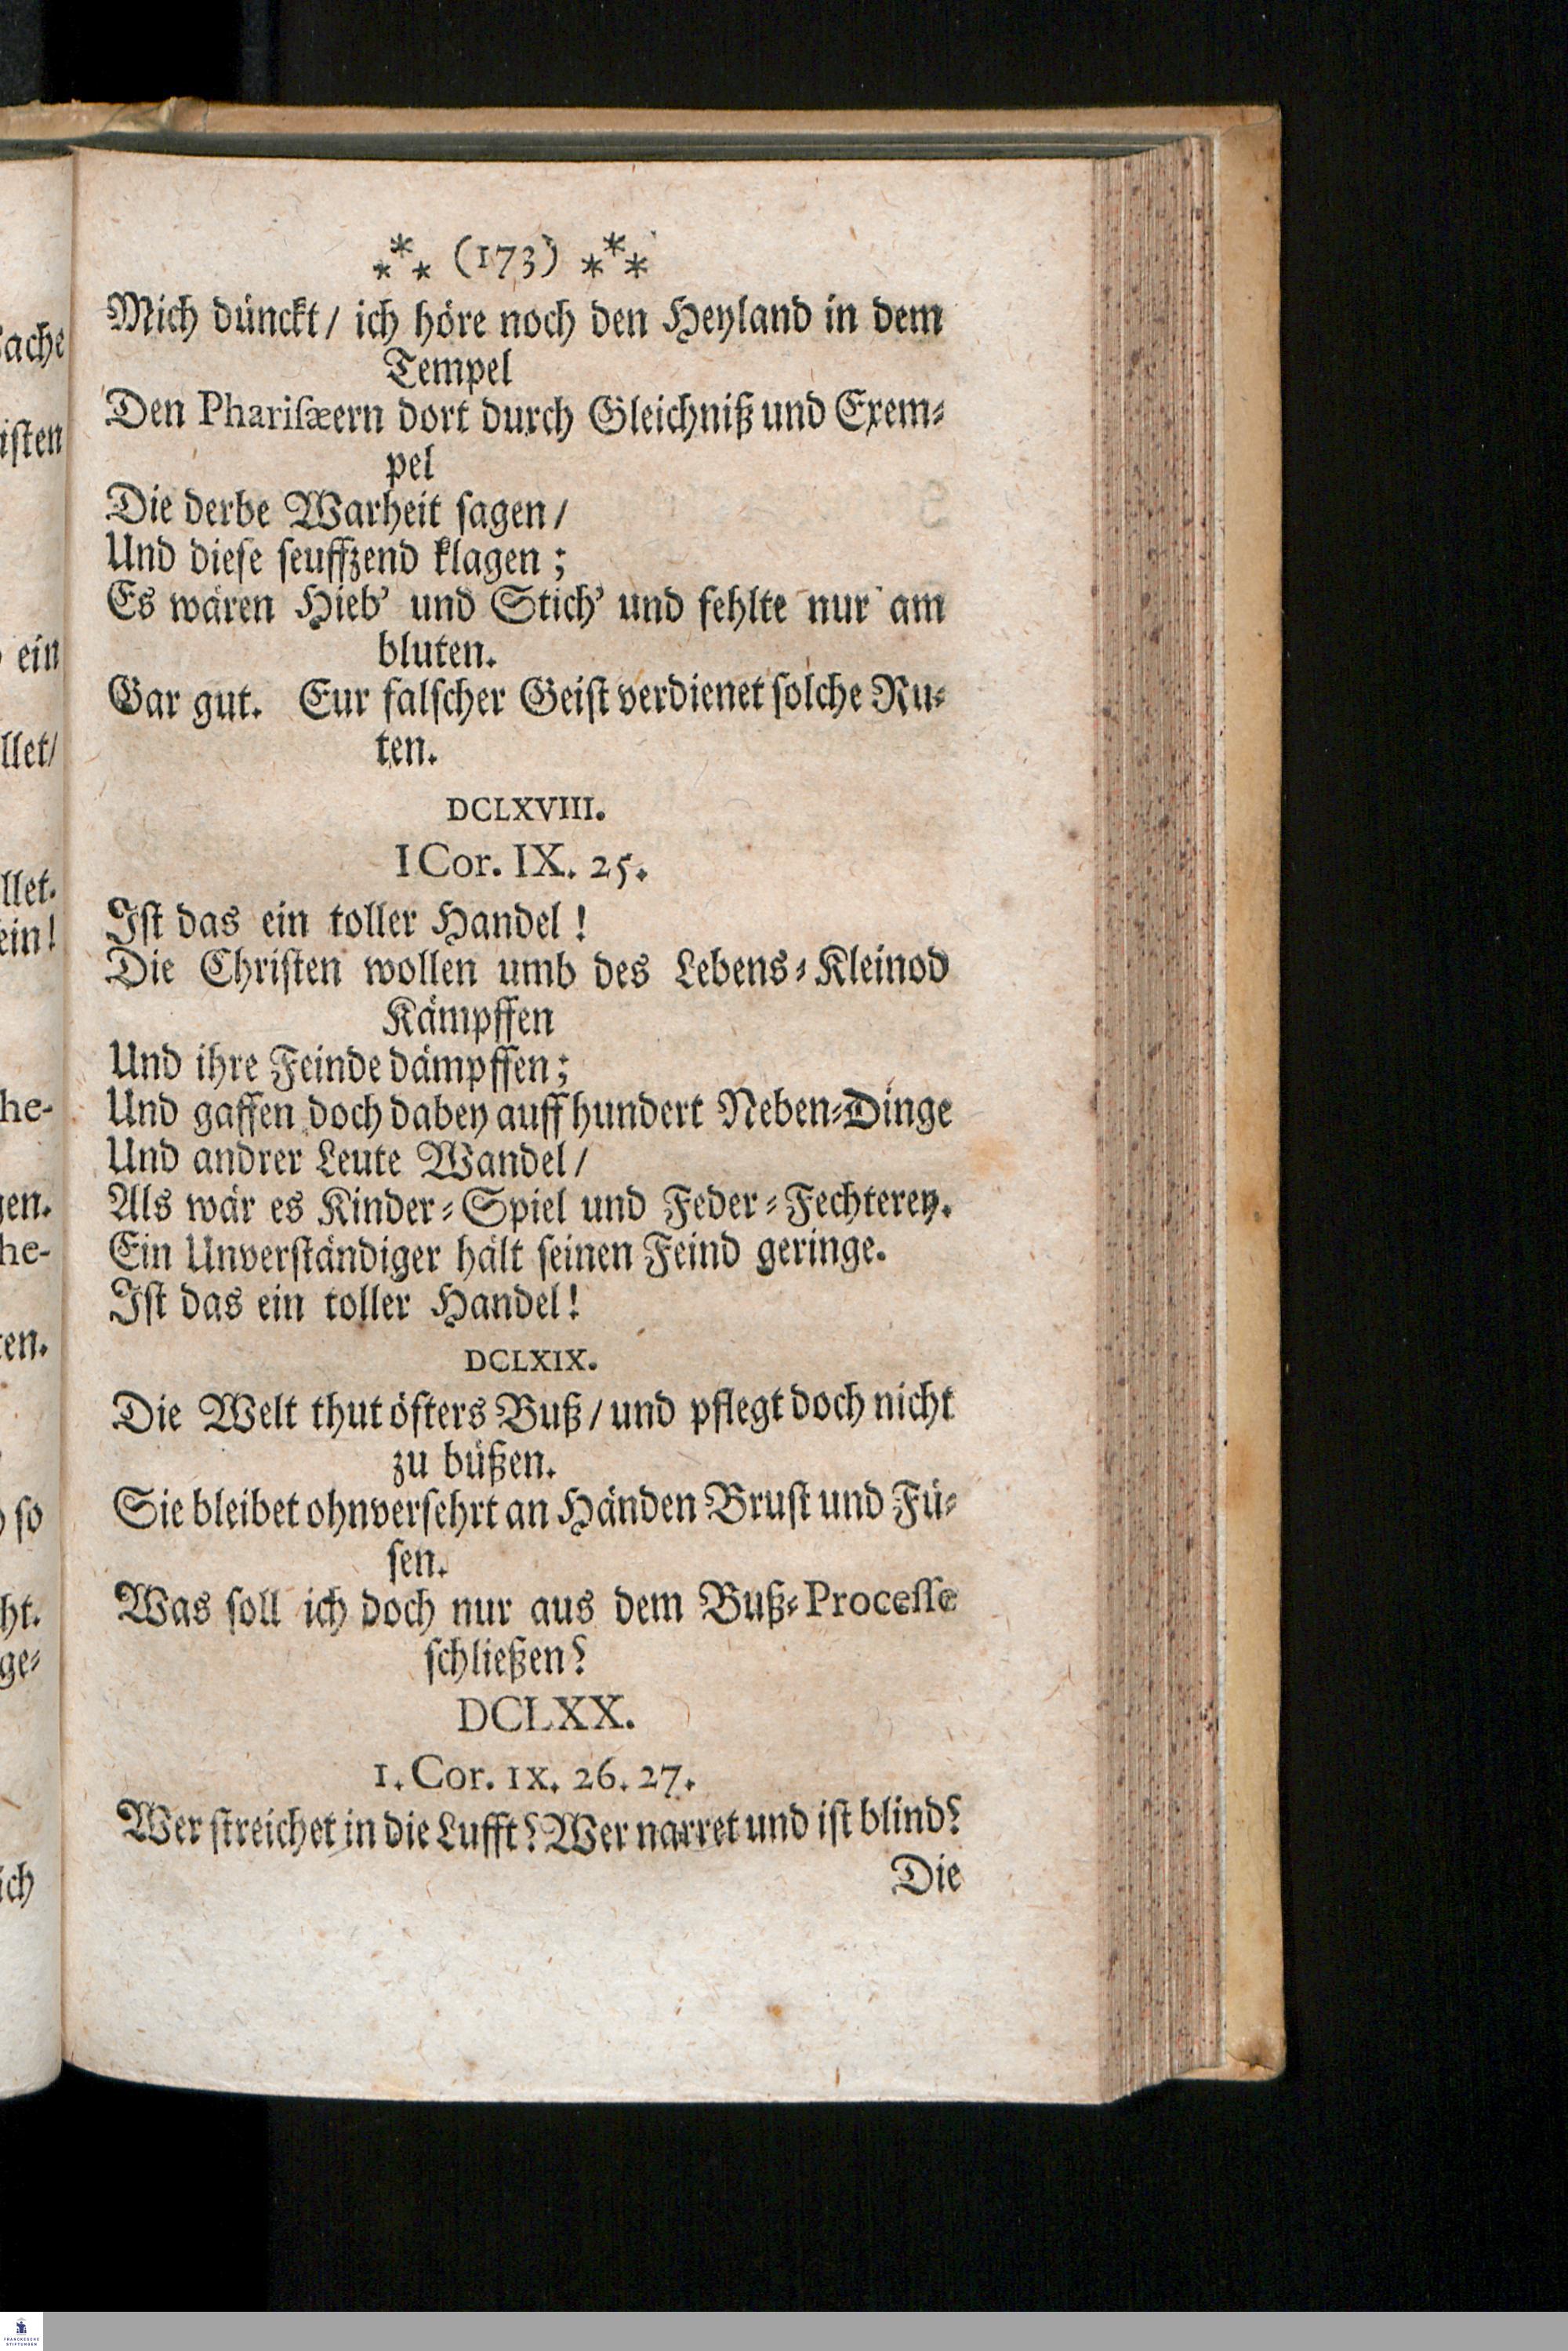 ⁂ (173) ⁂
Mich dünckt / ich höre noch den Heyland in dem
Tempel
Den Phariſæern dort durch Gleichniß und Exem⸗
pel
Die derbe Warheit ſagen /
Und dieſe ſeuffzend klagen ;
Es wären Hieb' und Stich' und fehlte nur am
bluten.
Gar gut. Eur falſcher Geiſt verdienet ſolche Ru⸗
ten.
DCLXVIII.
I Cor. IX. 25.
Iſt das ein toller Handel !
Die Chriſten wollen umb des Lebens⸗Kleinod
Kämpffen
Und ihre Feinde dämpffen;
Und gaffen doch dabey auff hundert Neben⸗Dinge
Und andrer Leute Wandel /
Als wär es Kinder⸗Spiel und Feder⸗Fechterey.
Ein Unverſtändiger hält ſeinen Feind geringe.
Iſt das ein toller Handel!
DCLXIX.
Die Welt thut öfters Buß / und pflegt doch nicht
zu büßen.
Sie bleibet ohnverſehrt an Händen Bruſt und Fü⸗
ſen.
Was ſoll ich doch nur aus dem Buß⸗Proceſſe
ſchließen?
DCLXX.
1. Cor. IX. 26. 27.
Wer ſtreichet in die Lufft? Wer narret und iſt blind?
Die
ache
iſten
ein
llet/
llet.
ein!
he-
gen.
he-
ten.
ſo
ht.
ge⸗
ich
FRANCKESCHE
STIFTUNGEN